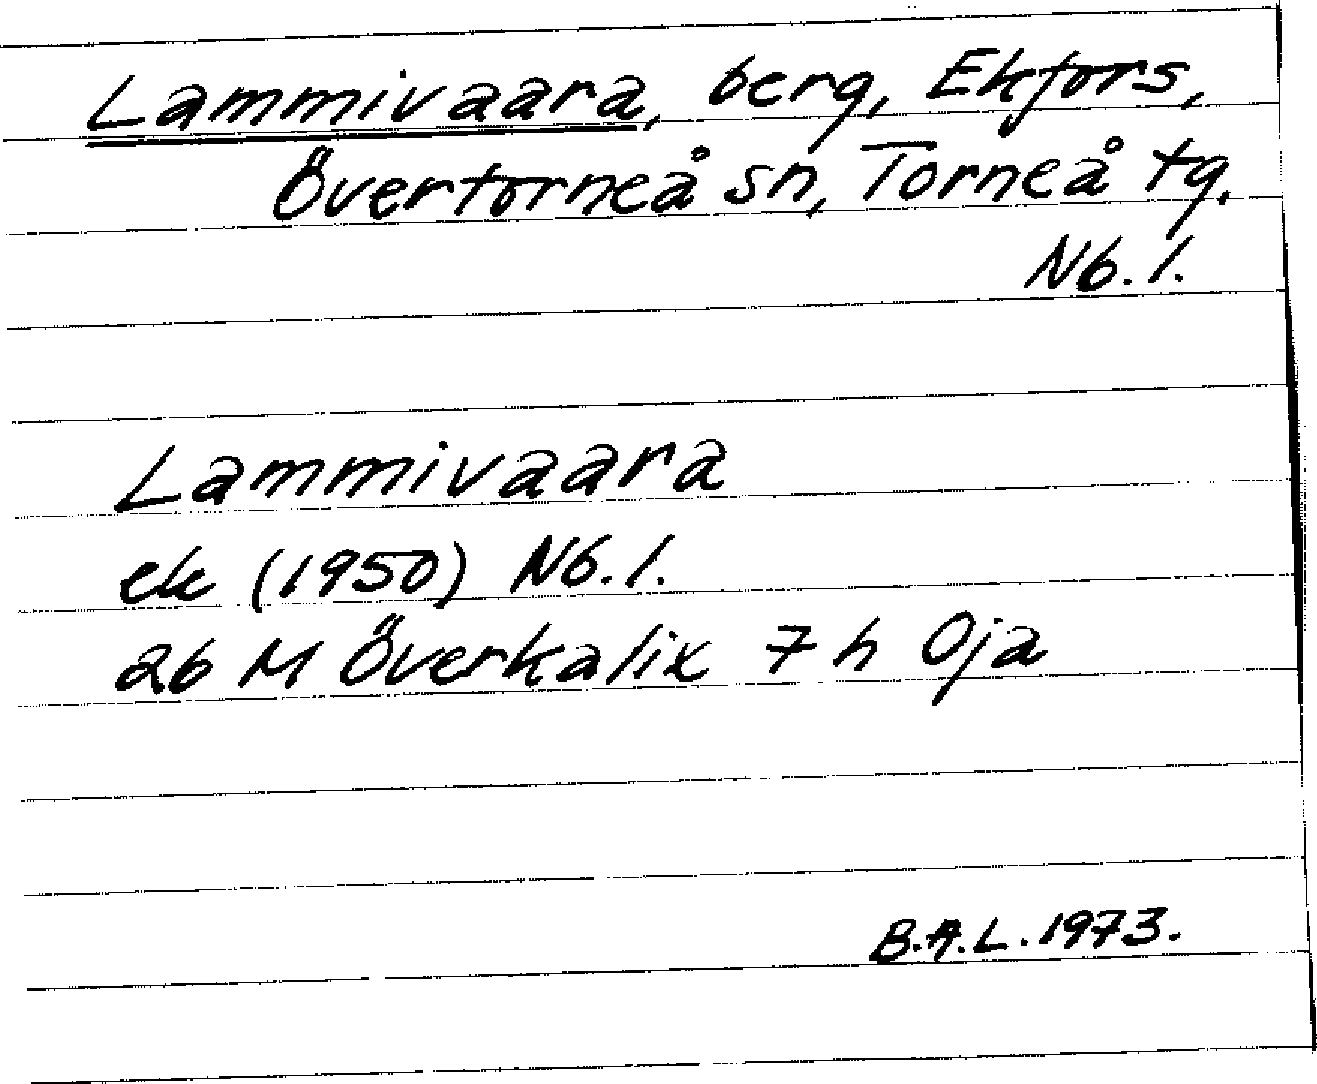 Lammivaara, berg, Ekfors,
Övertorneå sn, Torneå tg,
Nb. l.
Lammivaara
ek (1950) Nb. l.
26 M Överkalix 7 h Oja
B.A.L. 1973.